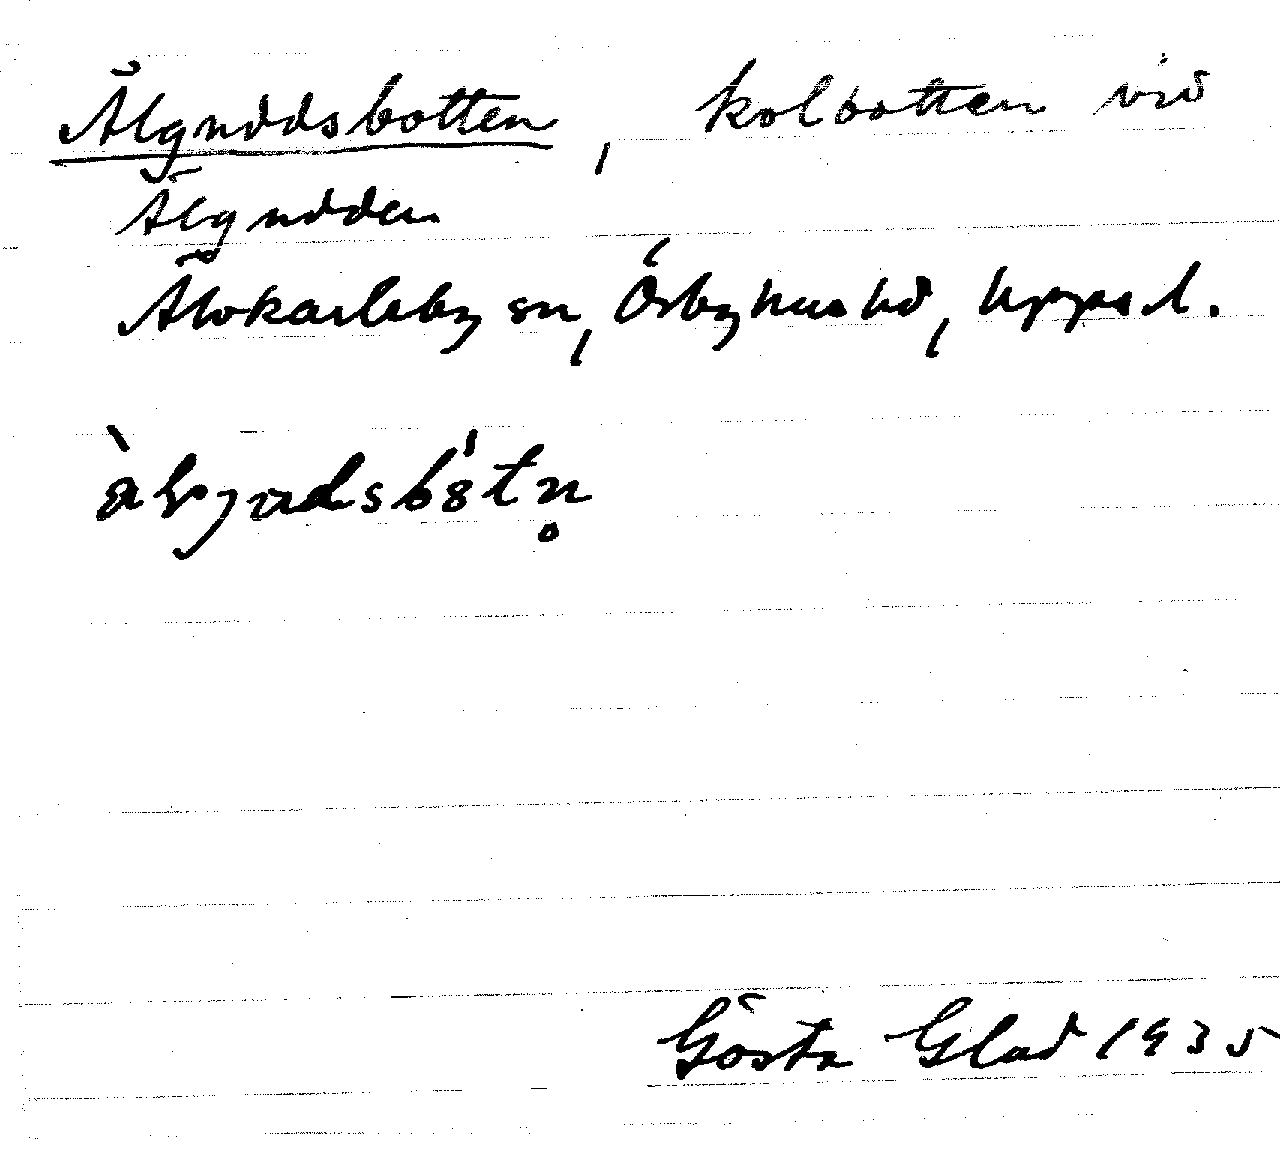 Älgnddsbotten, kolbotten vid
Älgndden
Älvkarleby sn, Örbyhus hd, Uppsal.
Gösta Glad 1935